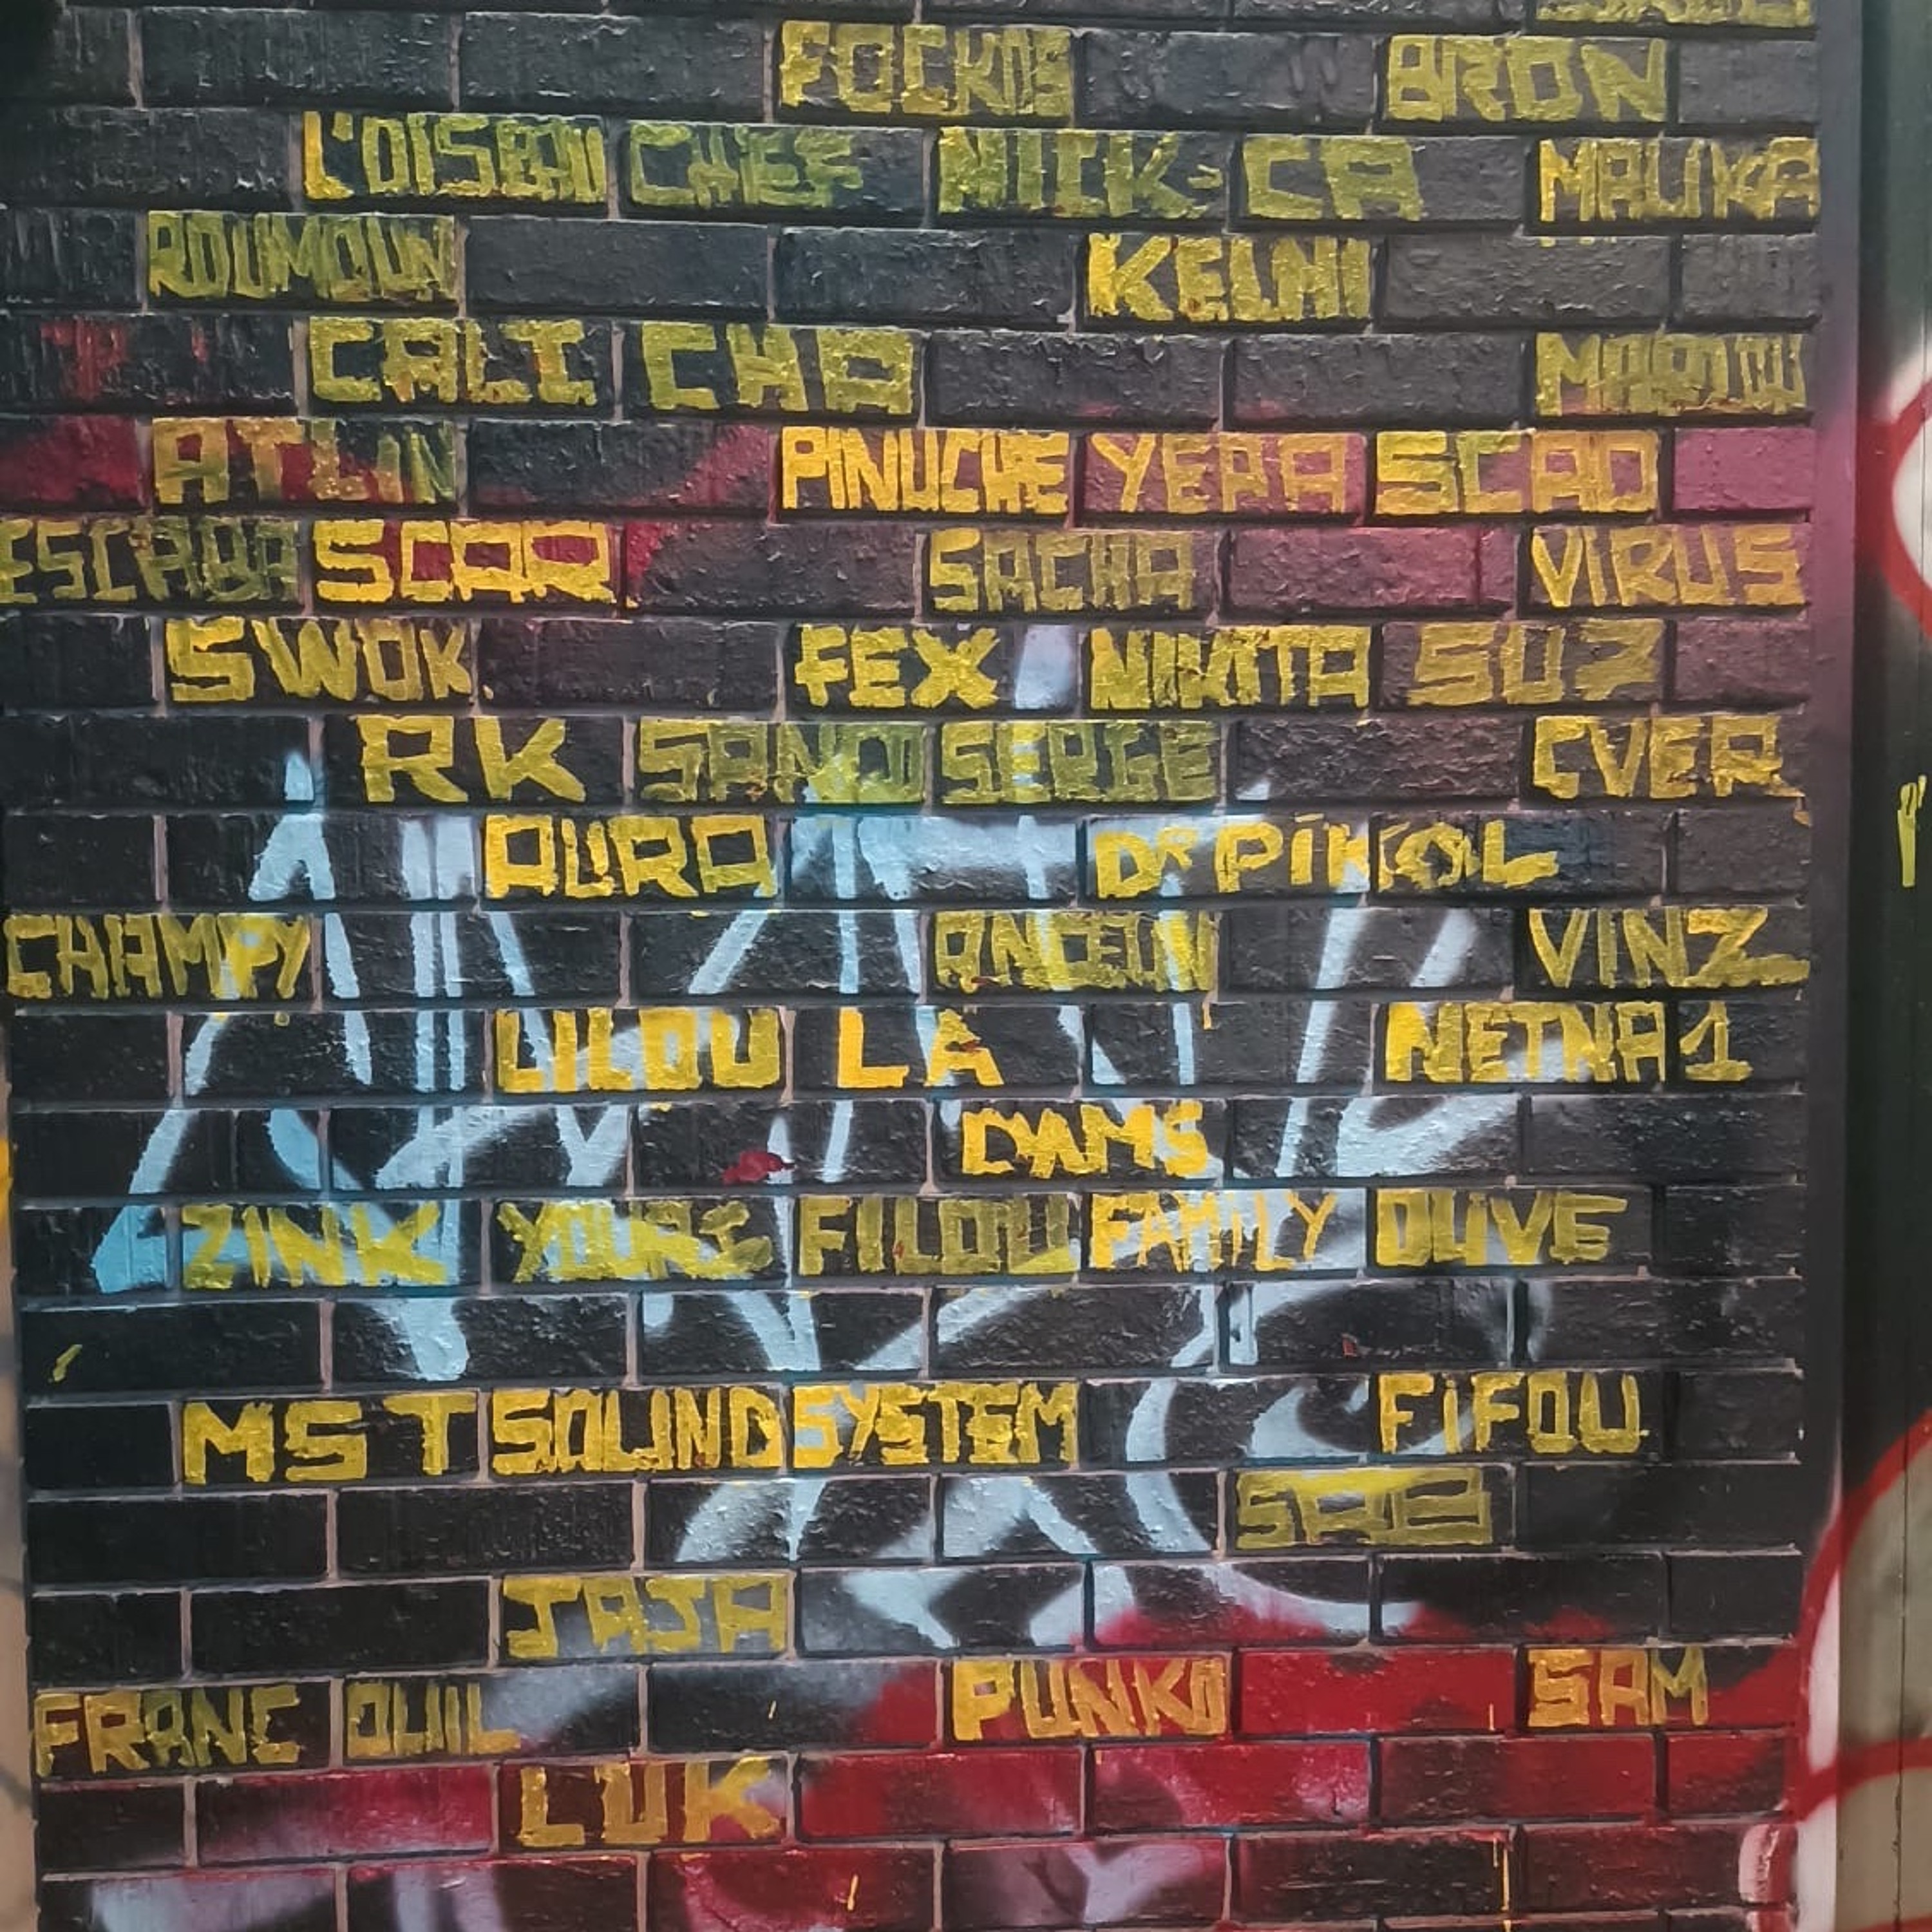 FOCKOS BRON
L'OISEAU CHEF NICK-CA MALIKA
ROUMOUN KELMI
CALI CHA MARIOW
ATLIN PINUCHE YEPA SCAO
ESCABA SCAR SACHA VIRUS
SWOK. FEX NIKITA SUZ
RK SANO SERGE CVER
AURA Dr PIKOL
CHAMPY ANCELIN VINZ
LILOU LA NETNA1
DAMS
ZINK YOURI FILOU FAMILY OLIVE
MST SOUND SYSTEM FiFOU
SAB
JAJA
FRANC OUIL PUNKO SAM
LUK